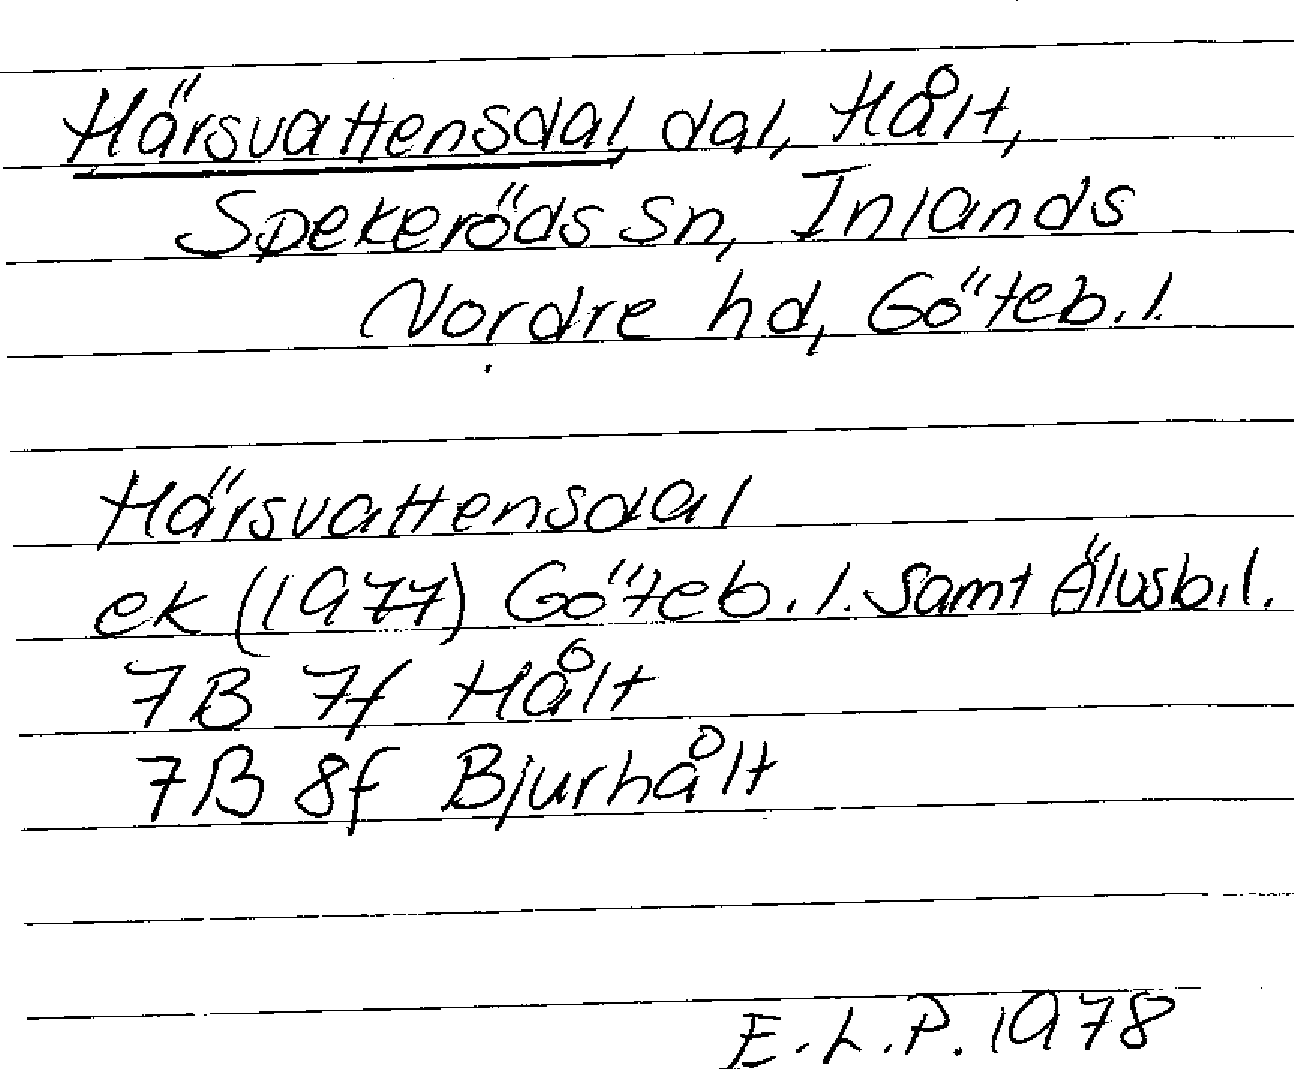 Härsvattensdal, dal, Hålt,
Spekeröds sn, Inlands
Nordre hd, Göteb. l.
Härsvattensdal
ek (1977) Göteb. l. samt Älvsb. l.
7B 7f Hålt
7B 8f Bjurhålt
E.L.P. 1978